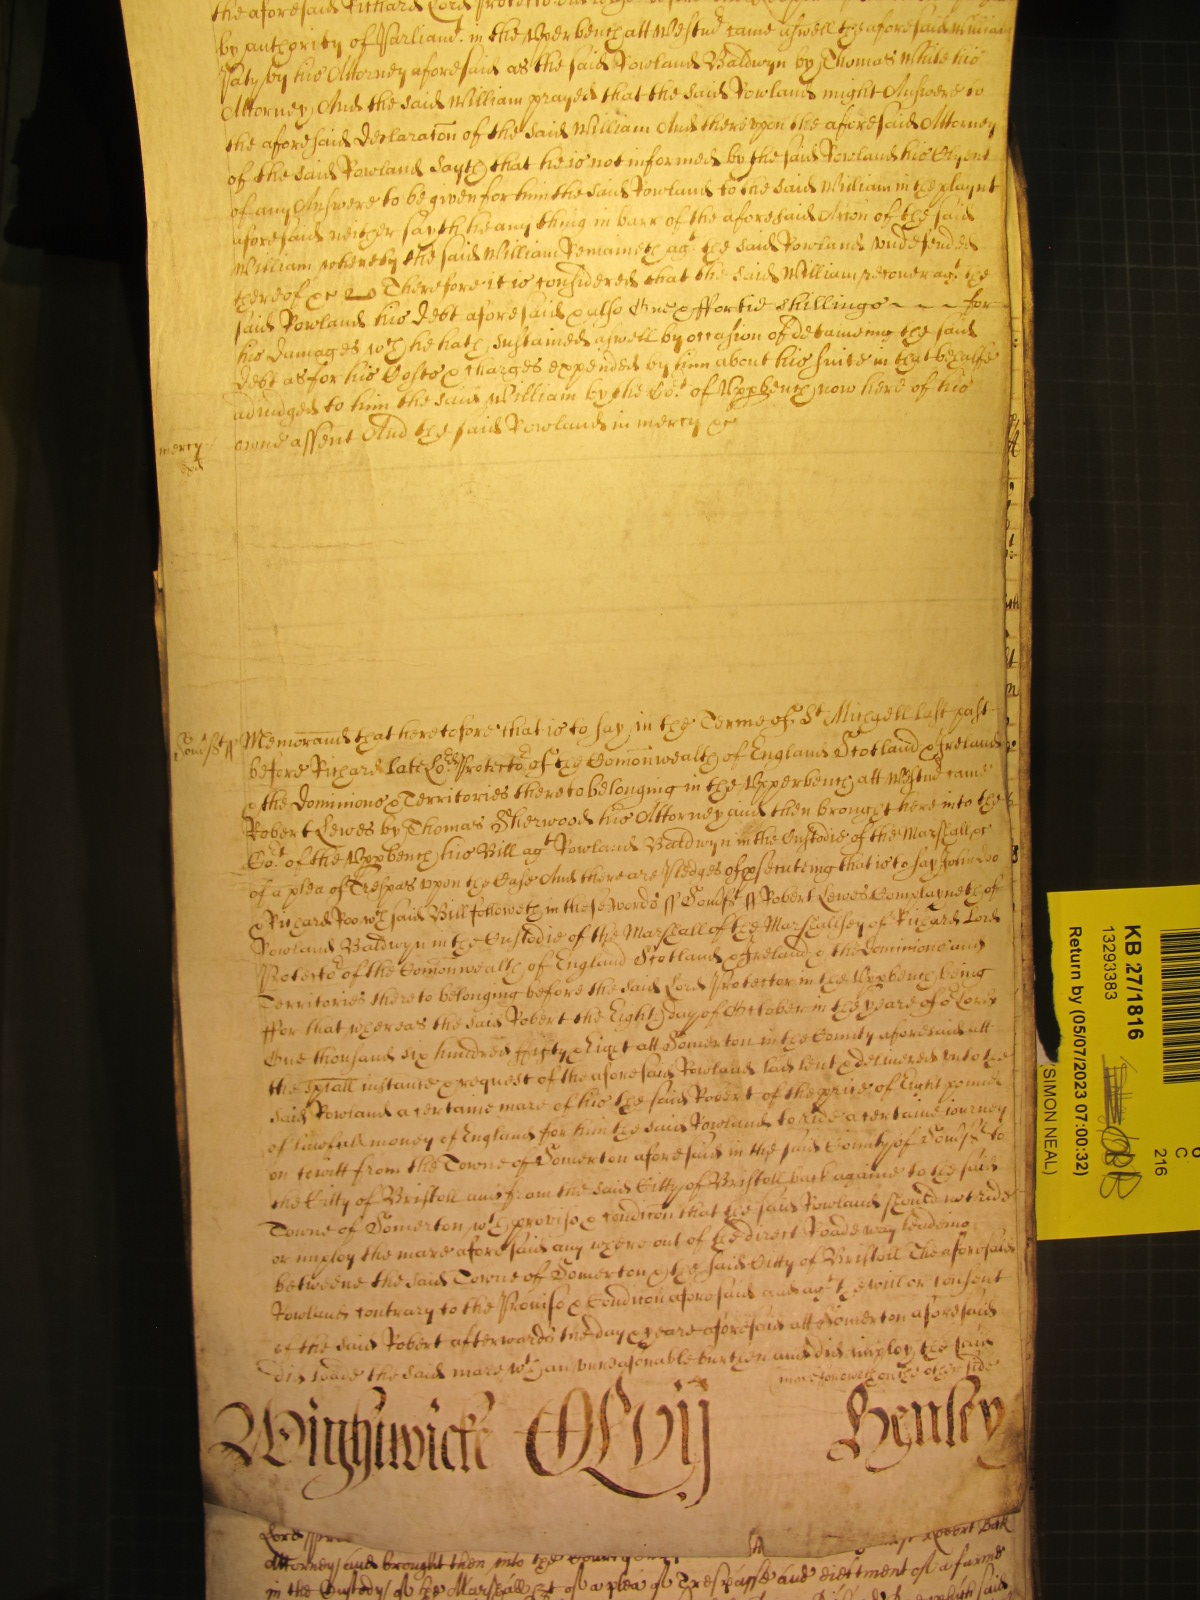 the aforesaid Richard Lord Protector
by authority of Parliamt. in the Upper bench att Westmr came aswell the aforesaid William
by his Attorney aforesaid as the said Rowland Baldwyn by Thomas White his
Attorney And the said William prayed that the said Rowland might Answere to
the aforesaid declaracon of the said William And thereupon the aforesaid Attorney
of the said Rowland Sayth that he is not informed by the said Rowland his Clyent
of any Answere to be given for him the said Rowland to the said William in the playnt
aforesaid neither sayth he any thing in barr of the aforesaid Accon of the said
William whereby the said William Remaineth agt the said Rowland undefended
thereof &c Therefore it is considered that the said William recover agt the
said Rowland his debt aforesaid & also One & ffortie shillings - - - for
his damages wch he hath sustained aswell by occasion of detaineing the said
debt as for his Costs & Charges expended by him about his suite in that behalfe
adiudged to him the said William by the Cot of Uppbench now here of his
owne assent And the said Rowland in mercy &c
mercy
Somst ss Memorand that heretofore that is to say in the Terme of St Michaell last past
before Richard late Lord Protector of the Comonwealth of England Scotland & Ireland
& the dominions & Territories thereto belonging in the Upperbench att Westmr came
Robert Lewes by Thomas Sherwood his Attorney and then brought here into the
Cot of the Uppbench his Bill agt Rowland Baldwyn in the Custodie of the Marshall &c
of a plea of Trespas upon the Case And there are Pledges of psecuteing that is to say John Doo
& Richard Roo wch said Bill followeth in these words ss Somst ss Robert Lewes Complayneth of
Rowland Baldwyn in the Custodie of the Marshall of the Marshallsey of Richard Lord
Protector of the Comonwealth of England Scotland & Ireland & the dominions and
Territories thereto belonging before the said Lord Protector in the Uppbench being
ffor that whereas the said Robert the Eighth day of October in the yeare of or Lord
One thousand six hundred ffifty & Eight att Somerton in the County aforesaid att
the spiall instance & request of the aforesaid Rowland had lent & delivered unto the
said Rowland a certaine mare of his the said Robert of the price of Eight pounds
of lawfull money of England for him the said Rowland to ride a certaine iourney
on to witt from the Towne of Somerton aforesaid in the said County of Somst to
the Citty of Bristoll and from the said Citty of Bristoll back againe to the said
Towne of Somerton wth proviso & condicon that the said Rowland should not ride
or imploy the mare aforesaid any where out of the direct Roade way leadeing
betweene the said Towne of Somerton & the said Citty of Bristoll The aforesaid
Rowland contrary to the Proviso & Condicon aforesaid and agt the will or consent
of the said Robert afterwards the day & yeare aforesaid att Somerton aforesaid
did loade the said mare wth an unreasonable burthen and did imploy the said
(more hereof on the other side
Wightwicke CLvij Henley
Attorney and brought then into the
in the Custody of the Marshall &c of a plea of Trespasse and eiectment of a farme
KB 27/1816
13293383
Return by (05/07/2023 07:00:32)
(SIMON NEAL)
C
216